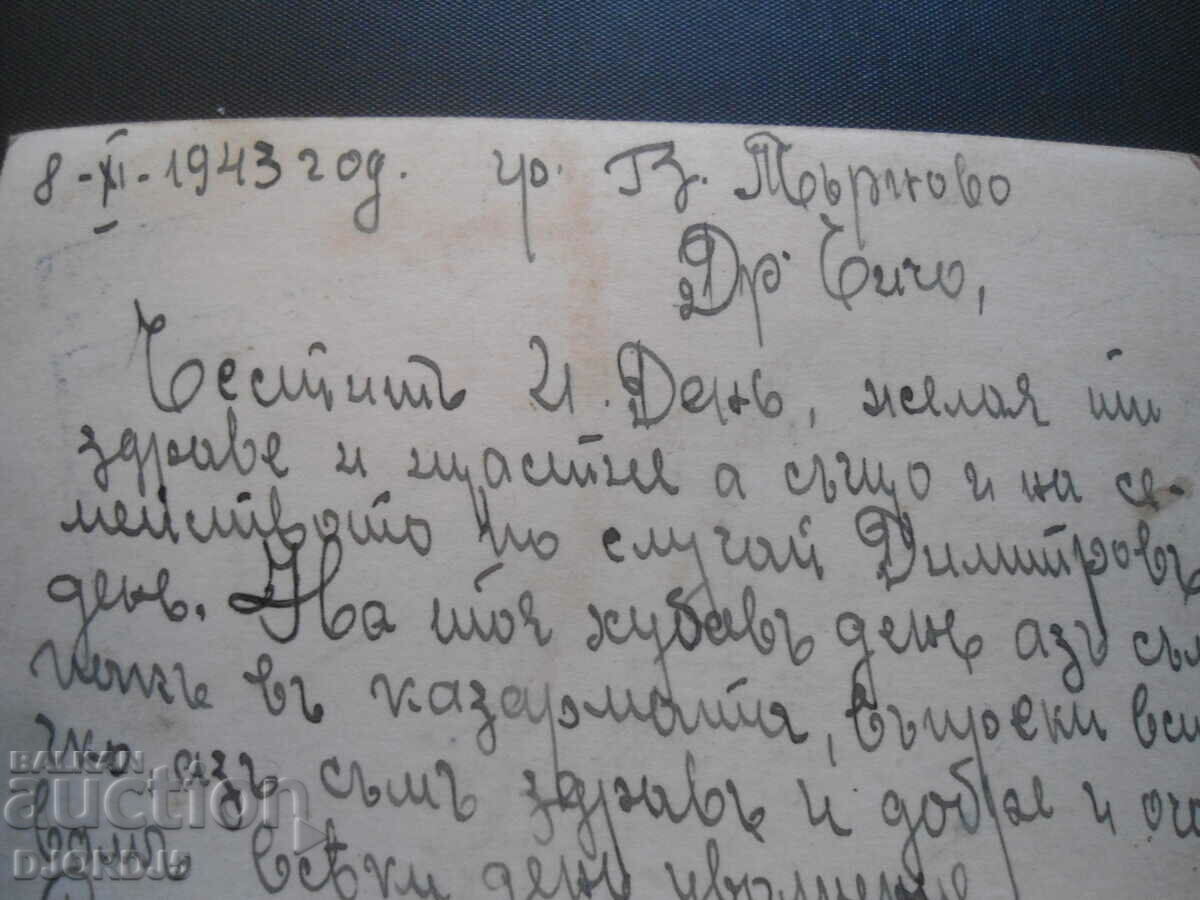 8-XI-1943 год. гр. В. Търново
Др. Чичо,
Честитъ И. День, желая ти
здраве и щастие а също и на се-
мейството по случай Димитровъ
день. На тоя хубавъ день азъ съм
въ казармата, въпреки вси
чко, азъ съмъ здравъ и добре и оча
всѣки день уволнение
BALKAN
auction
DJORDJb